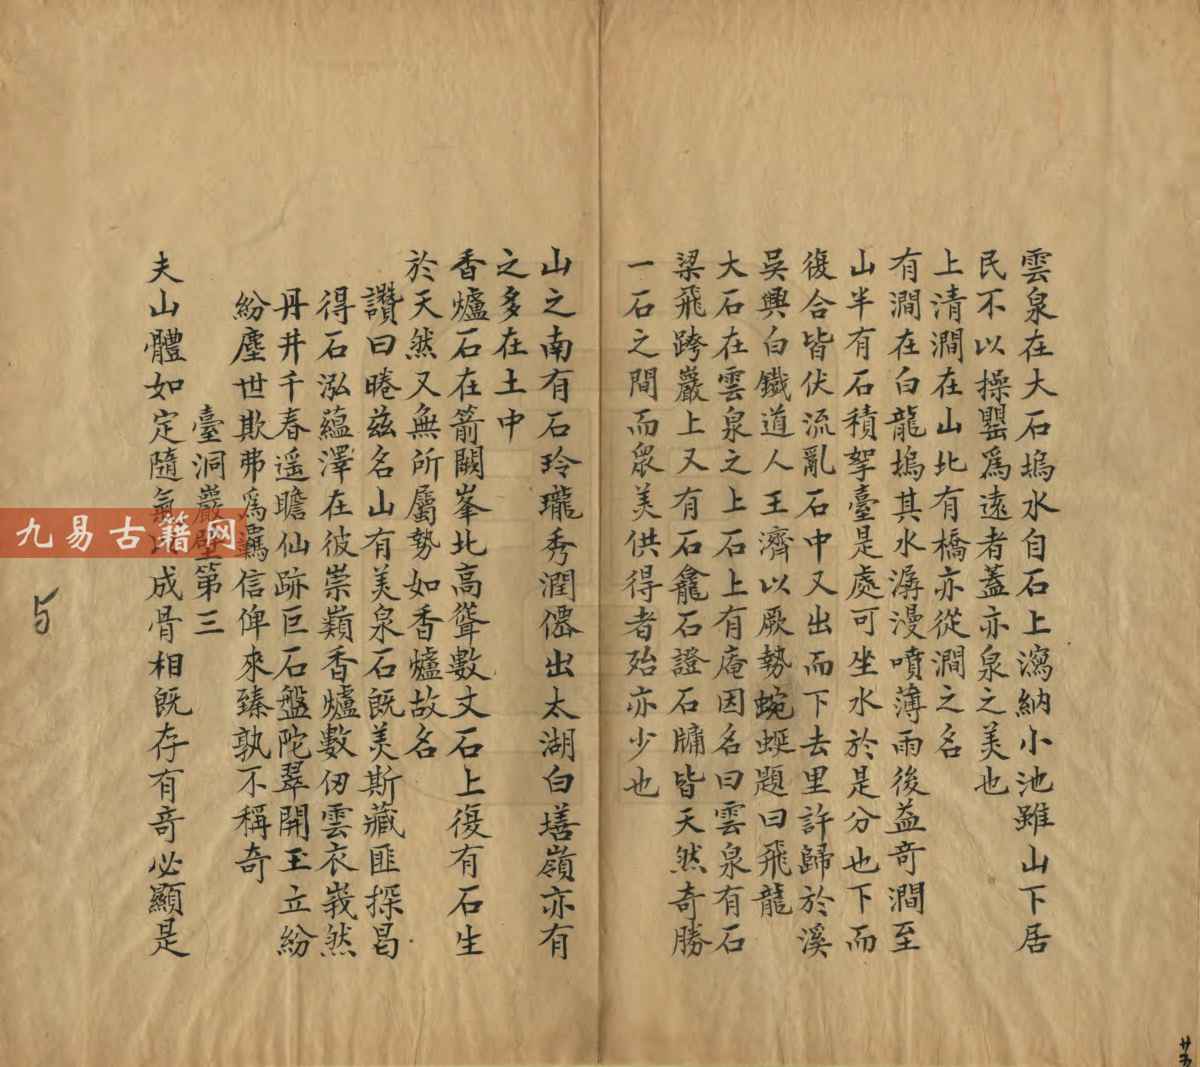 雲泉在大石塢水自石上瀉納小池雖山下居
民不以操罌爲遠者蓋亦泉之美也
上清澗在山北有橋亦從澗之名
有澗在白龍塢其水潺漫噴薄雨後益奇澗至
山半有石積拏臺是處可坐水於是分也下而
復合皆伏流亂石中又出而下去里許歸於溪
吳興白鐵道人王濟以厥勢蜿蜒題曰飛龍
大石在雲泉之上石上有庵因名曰雲泉有石
梁飛跨巖上又有石龕石證石牗皆天然奇勝
一石之間而衆美供得者殆亦少也
山之南有石玲瓏秀潤僊出太湖白墡嶺亦有
之多在土中
香爐石在箭闕峯北高聳數丈石上復有石生
於天然又無所屬勢如香爐故名
讚曰睠兹名山有美泉石既美斯藏匪探曷
得石泓蘊澤在彼崇巔香爐數仞雲衣峩然
丹井千春遥瞻仙跡巨石盤陀翠開玉立紛
紛塵世欺弗爲羈信俾來臻孰不稱奇
臺洞巖壁第三
夫山體如定隨氣成骨相既存有奇必顯是
九易古籍网
5
廿五